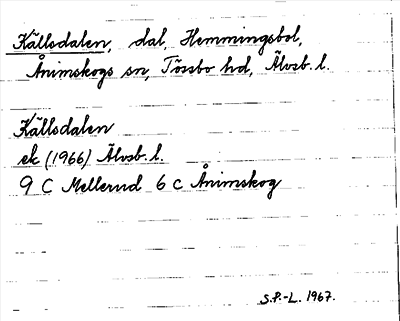 Källsdalen, dal, Hemmingsbol,
Ånimskogs sn, Tössbo hd, Älvsb. l.
Källsdalen
ek (1966) Älvsb. l.
9 C Mellerud 6 c Ånimskog
S.P.-L. 1967.